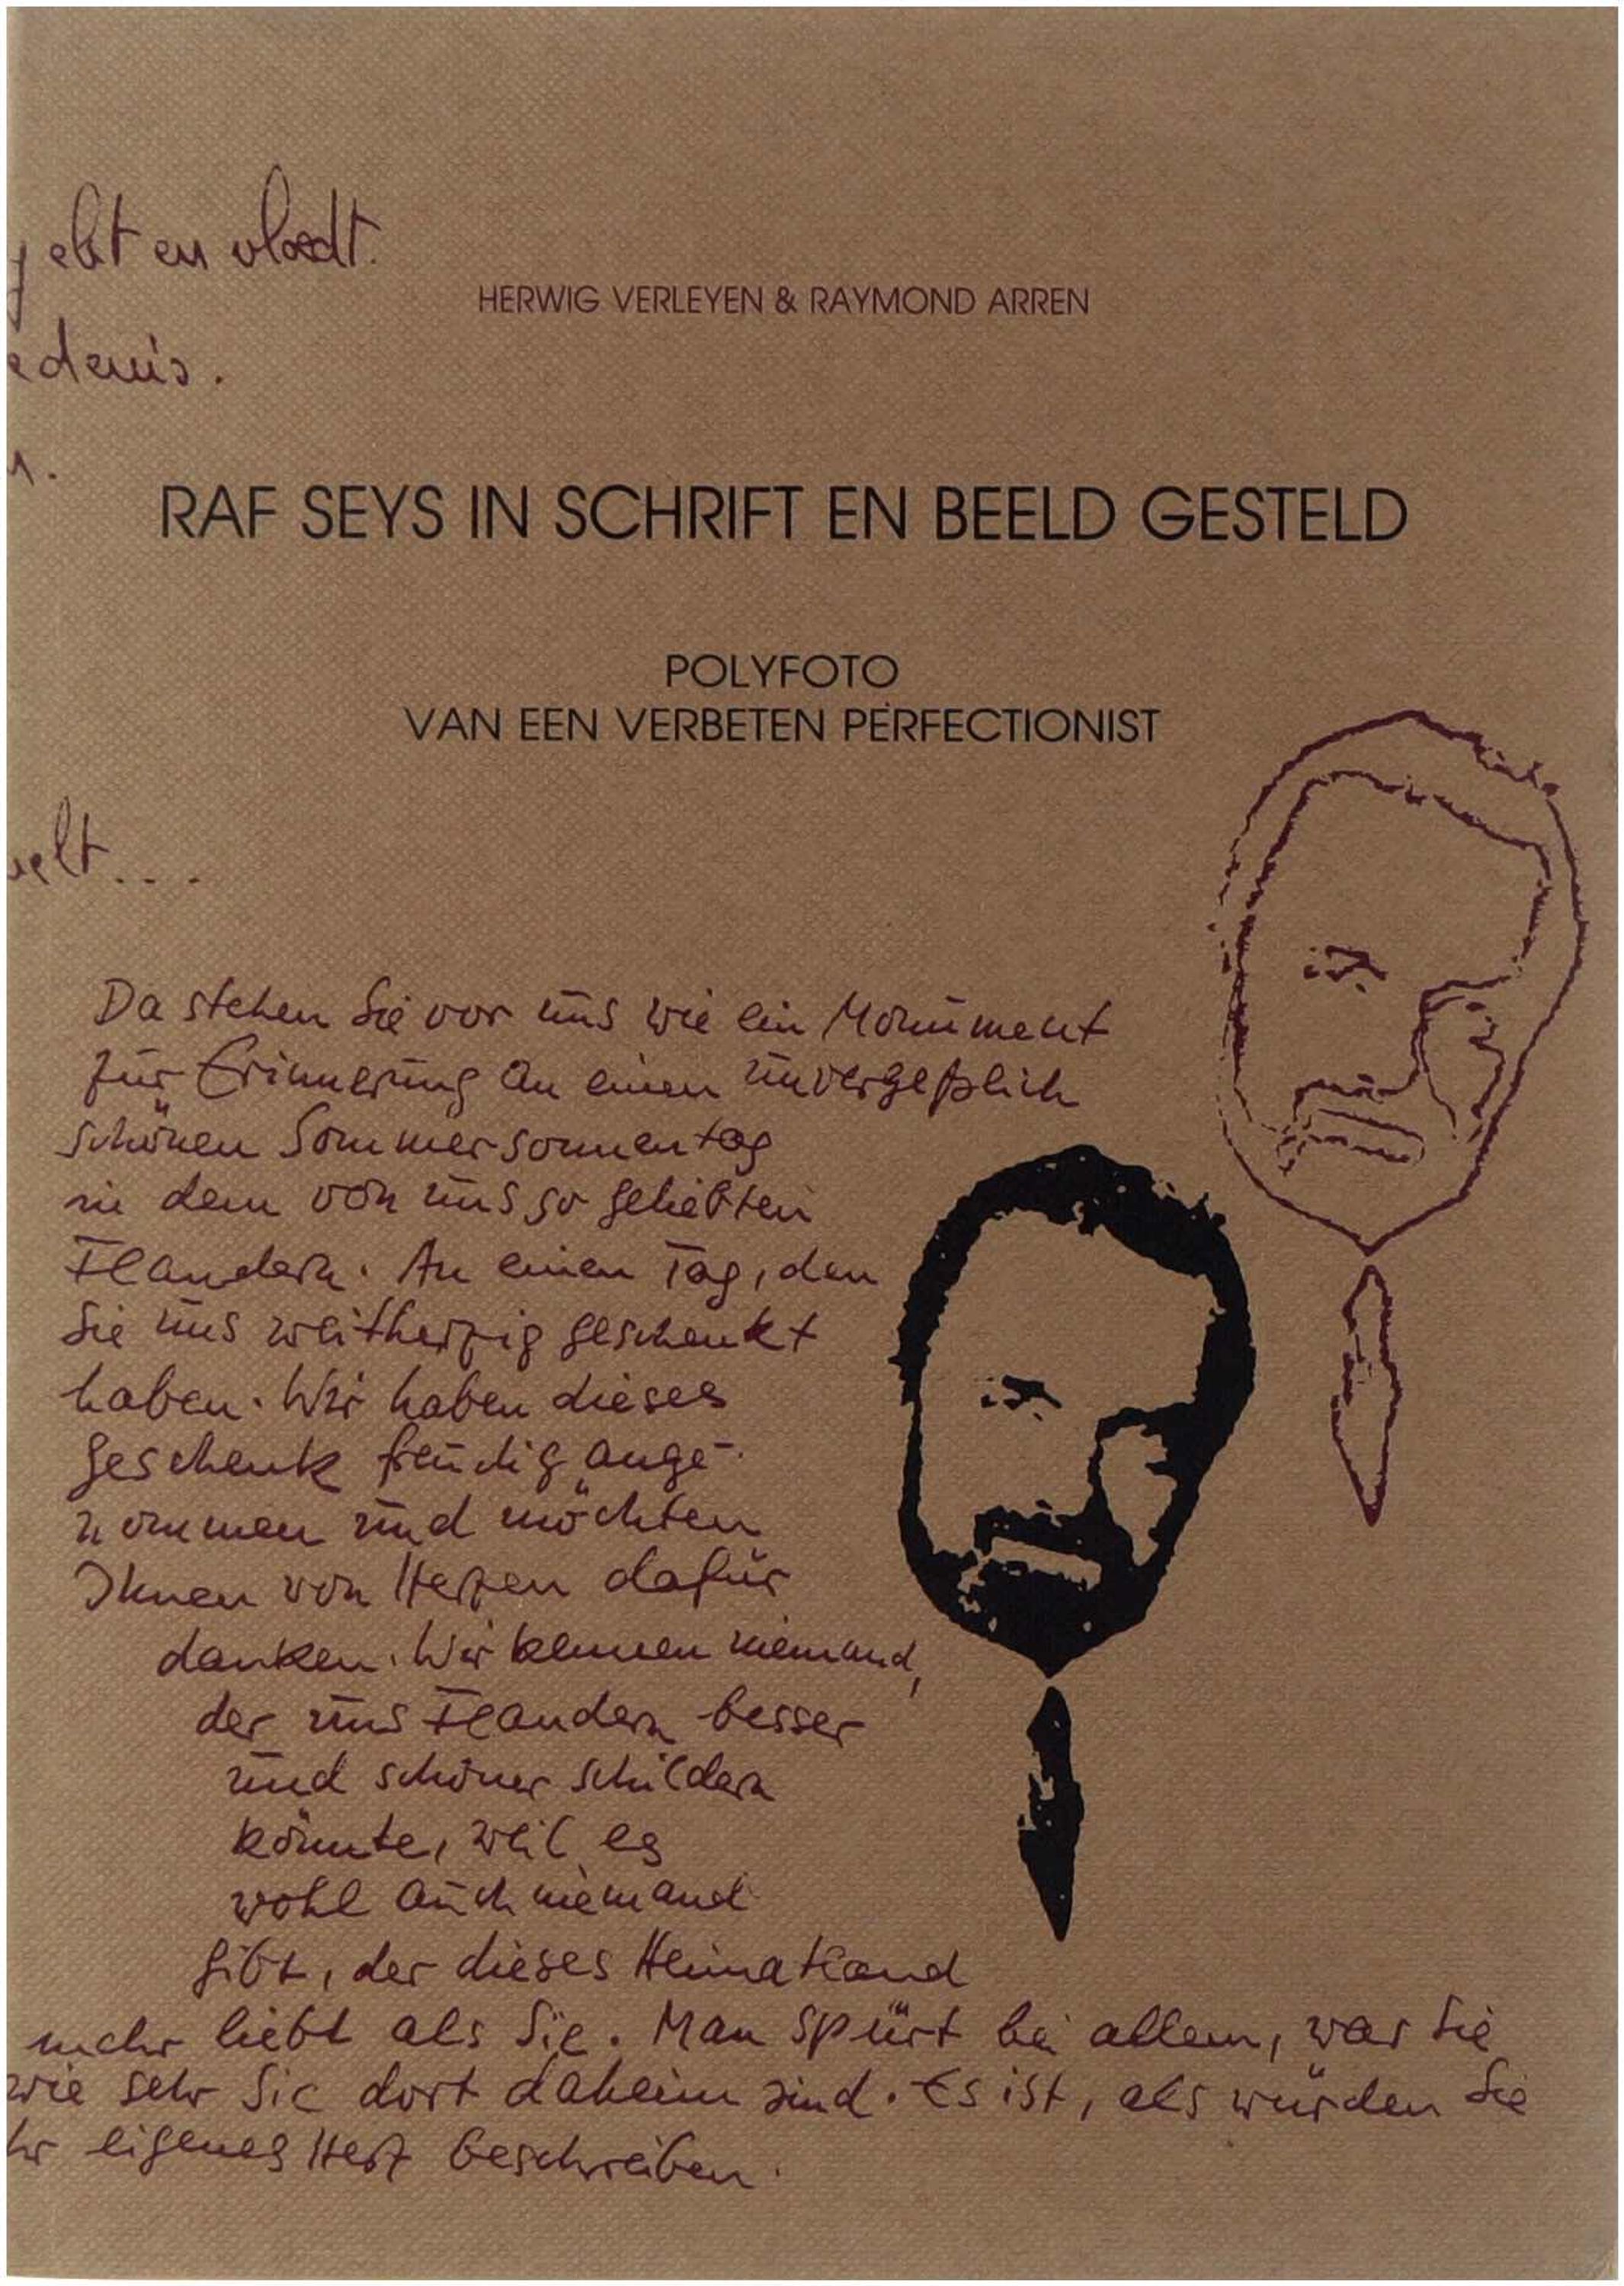 ebt en vloedt.
HERWIG VERLEYEN & RAYMOND ARREN
edenis.
RAF SEYS IN SCHRIFT EN BEELD GESTELD
POLYFOTO
VAN EEN VERBETEN PERFECTIONIST
elt....
Da stehen Sie vor uns wie ein Monument
zur Erinnerung an einen unvergeßlich
schönen Sommersonnentag
in dem von uns so geliebten
Flandern. An einen Tag, den
Sie uns weitherzig geschenkt
haben. Wir haben dieses
Geschenk freudig ange-
nommen und möchten
Ihnen von Herzen dafür
danken. Wir kennen niemand,
der uns Flandern besser
und schöner schildern
könnte, weil es
wohl auch niemand
gibt, der dieses Heimatland
mehr liebt als Sie. Man spürt bei allem, was Sie
wie sehr Sie dort daheim sind. Es ist, als würden Sie
hr eigenes Herz beschreiben.